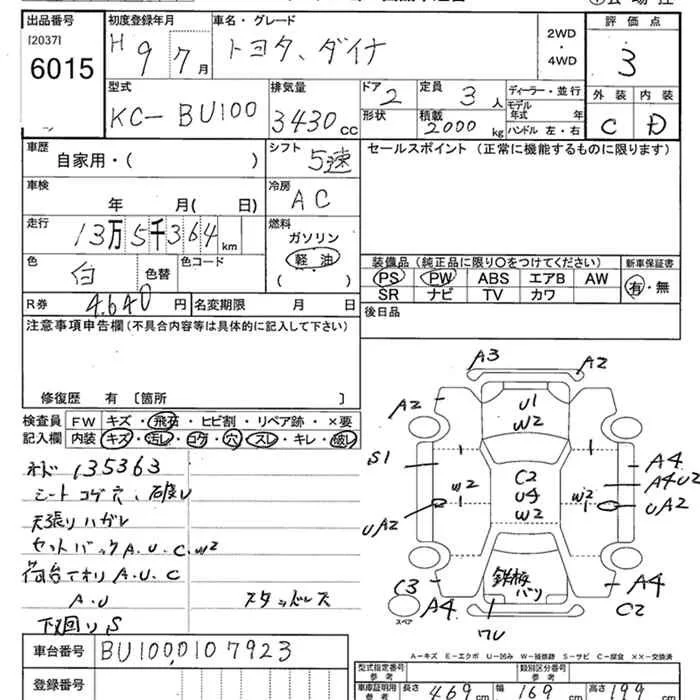 出品番号 初度登録年月 車名・グレード 2WD・4WD 評価点
[2037]
6015 H 9 7月 トヨタ、ダイナ 3
型式 排気量 ドア 定員 ディーラー・並行 外装 内装
KC-BU100 3430cc 2 3人 モデル年式 年
形状 積載 2000kg ハンドル 左・右 C D
車歴 シフト セールスポイント (正常に機能するものに限ります)
自家用・( ) 5速
車検 冷房
年 月( 日) AC
走行 燃料
13万5千364km ガソリン
軽油
( )
色 色替 色コード 装備品 (純正品に限り○をつけてください) 新車保証書
白 PS PW ABS エアB AW 有・無
SR ナビ TV カワ
R券 4.640円 名変期限 月 日 後日品
注意事項申告欄 (不具合内容等は具体的に記入して下さい)
修復歴 有 〔箇所 〕
検査員 FW キズ・飛石・ヒビ割・リペア跡・×要
記入欄 内装 キズ・汚し・コゲ・穴・スレ・キレ・破レ
A3 A2
A2 U1
W2
S1 A4
W2 C2 W2 A4U2
UA2 U4 UA2
W2
鉄板
バリ
C3 A4 A4
スペア C2
ワレ
135363
シート コゲ穴、破レ
天張りハガレ
セットバックA.U.C.W2
荷台アオリ A.U.C
A.U スタッドレス
下回りS
A-キズ E-エクボ U-凹み W-補修跡 S-サビ C-腐食 ××-交換済
車台番号 BU100,0107923
型式指定番号 参考 類別区分番号 参考
登録番号 車庫証明用 参考 長さ 469cm 幅 169cm 高さ 199cm